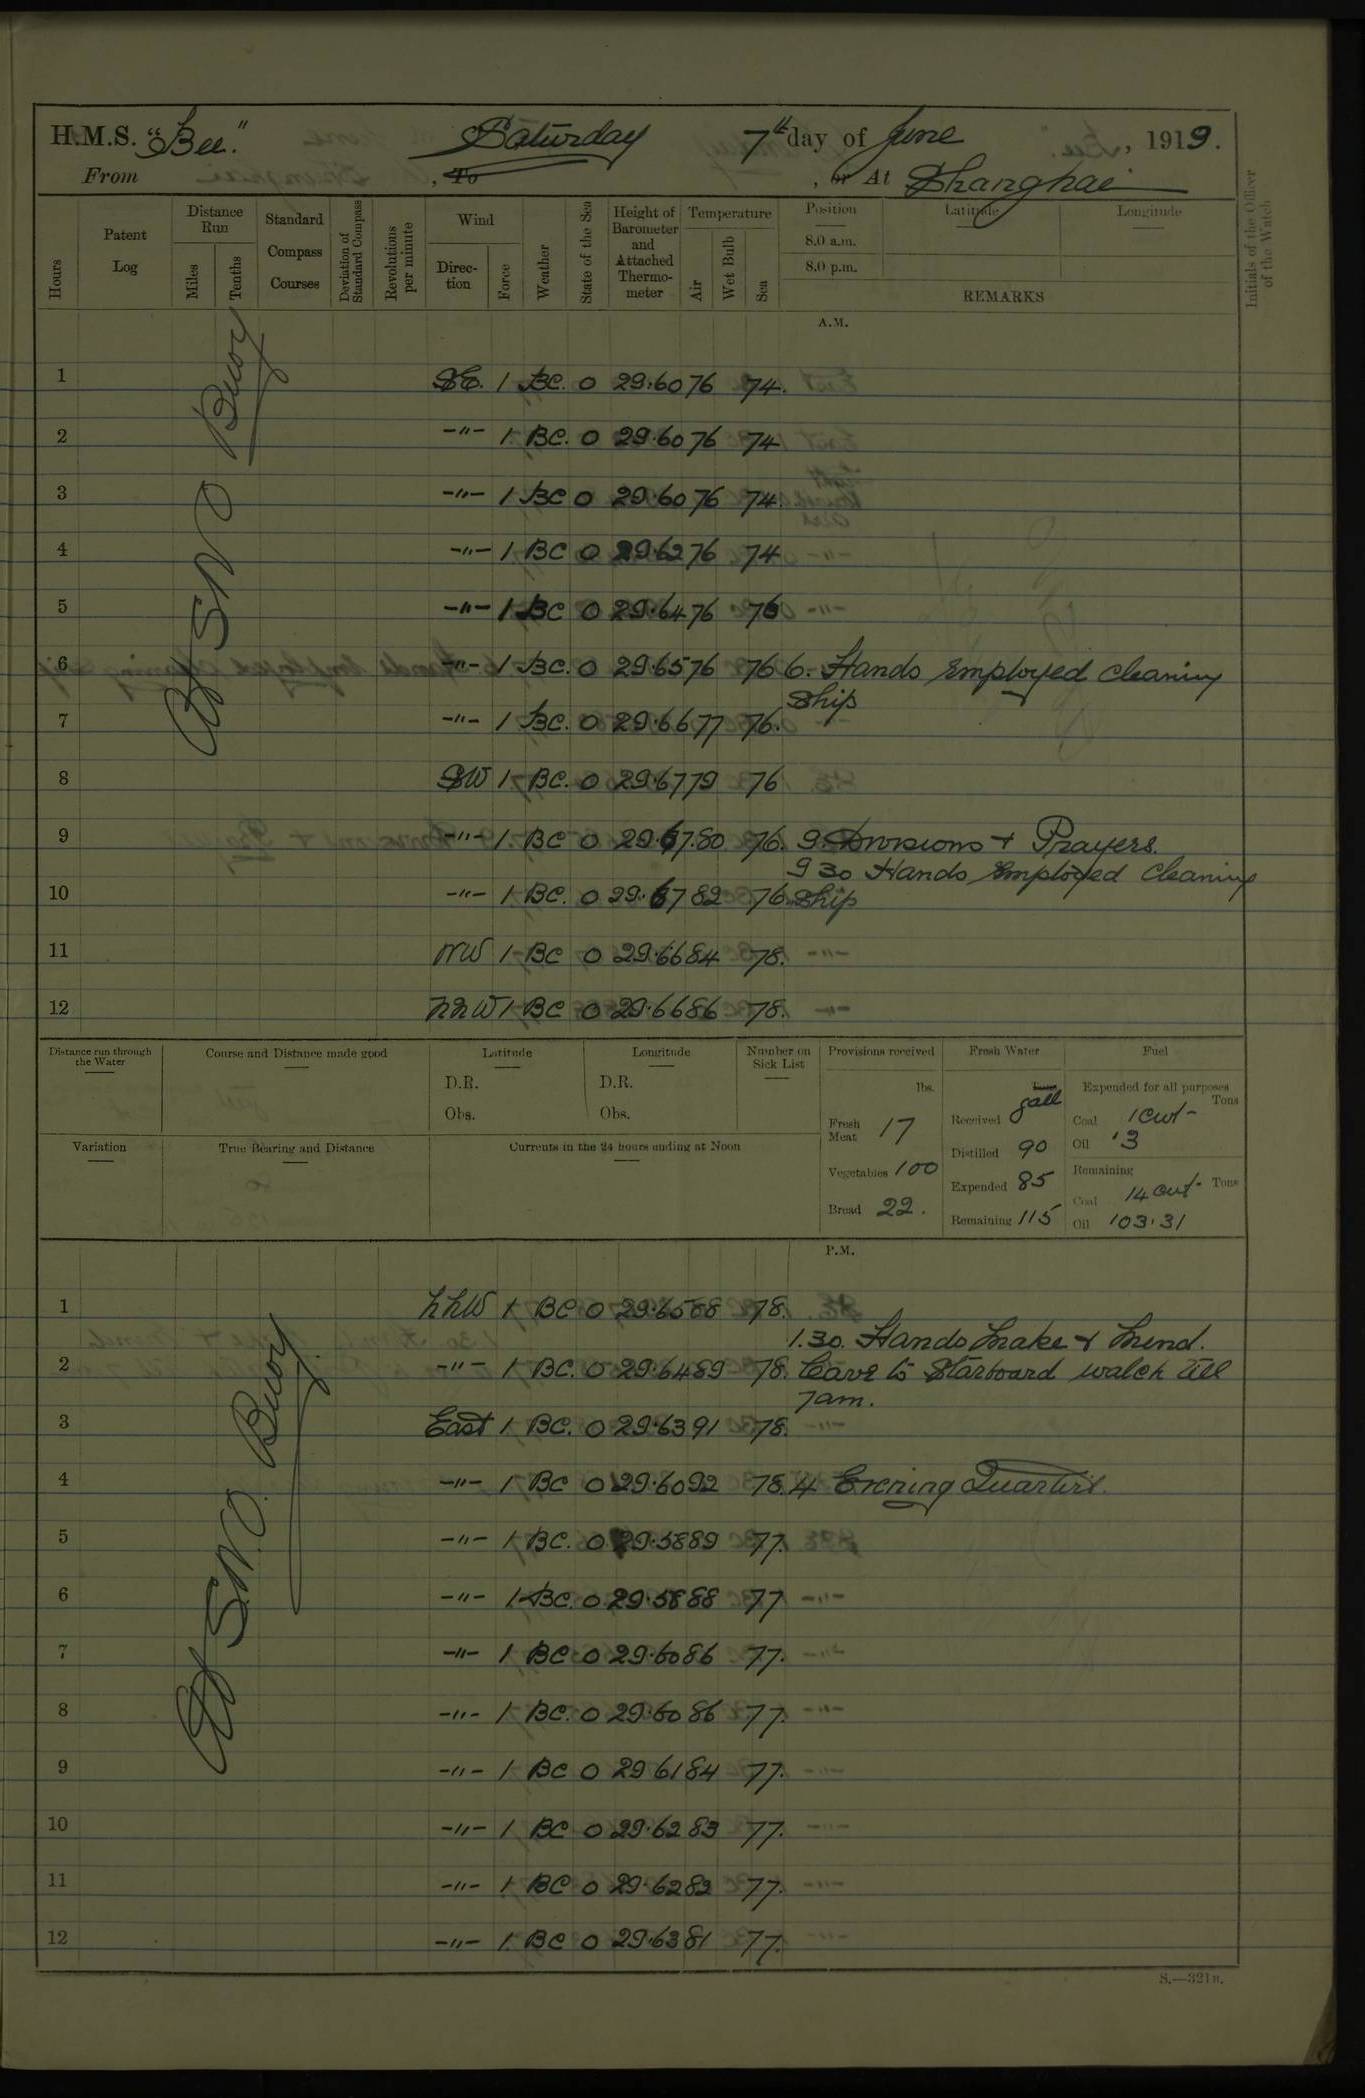 H.M.S. "Bee". Saturday 7th day of June, 1919.
From , To , or At Shanghai
Hours
Patent Log
Distance Run
Miles
Tenths
Standard Compass Courses
Deviation of Standard Compass
Revolutions per minute
Wind
Direction
Force
Weather
State of the Sea
Height of Barometer and Attached Thermometer
Temperature
Air
Wet Bulb
Sea
Position
8.0 a.m.
8.0 p.m.
Latitude
Longitude
REMARKS
Initials of the Officer of the Watch
A.M.
At S.N.O Buoy
1 SE. 1 BC. 0 29.60 76 74.
2 -"- 1 BC. 0 29.60 76 74
3 -"- 1 BC 0 29.60 76 74.
4 -"- 1 BC 0 29.62 76 74
5 -"- 1 BC 0 29.64 76 76
6 -"- 1 BC. 0 29.65 76 76 6. Hands employed cleaning
Ship
7 -"- 1 BC. 0 29.66 77 76.
8 SW 1 BC. 0 29.67 79 76
9 -"- 1 BC 0 29.67 80 76. 9. Divisions + Prayers.
9 30 Hands employed cleaning
10 -"- 1 BC. 0 29.67 82 76. Ship
11 NW 1 BC 0 29.66 84 78.
12 NNW 1 BC 0 29.66 86 78.
Distance run through the Water
Course and Distance made good
Latitude
D.R.
Obs.
Longitude
D.R.
Obs.
Number on Sick List
Variation
True Bearing and Distance
Currents in the 24 hours ending at Noon
Provisions received
lbs.
Fresh Meat 17
Vegetables 100
Bread 22.
Fresh Water
Tons gall
Received
Distilled 90
Expended 85
Remaining 115
Fuel
Expended for all purposes
Tons
Coal 1 cwt
Oil .3
Remaining
Tons
Coal 14 cwt
Oil 103.31
P.M.
At S.N.O. Buoy
1 NNW 1 BC 0 29.65 88 78.
1.30. Hands Make & Mend.
2 -"- 1 BC. 0 29.64 89 78. Leave to Starboard watch till
7am.
3 East 1 BC. 0 29.63 91 78.
4 -"- 1 BC 0 29.60 92 78. 4 Evening Quarters.
5 -"- 1 BC. 0 29.58 89 77.
6 -"- 1 BC. 0 29.58 88 77
7 -"- 1 BC 0 29.60 86 77.
8 -"- 1 BC. 0 29.60 86 77.
9 -"- 1 BC 0 29 61 84 77.
10 -"- 1 BC 0 29.62 83 77.
11 -"- 1 BC 0 29.62 82 77.
12 -"- 1 BC 0 29.63 81 77.
S.—321B.